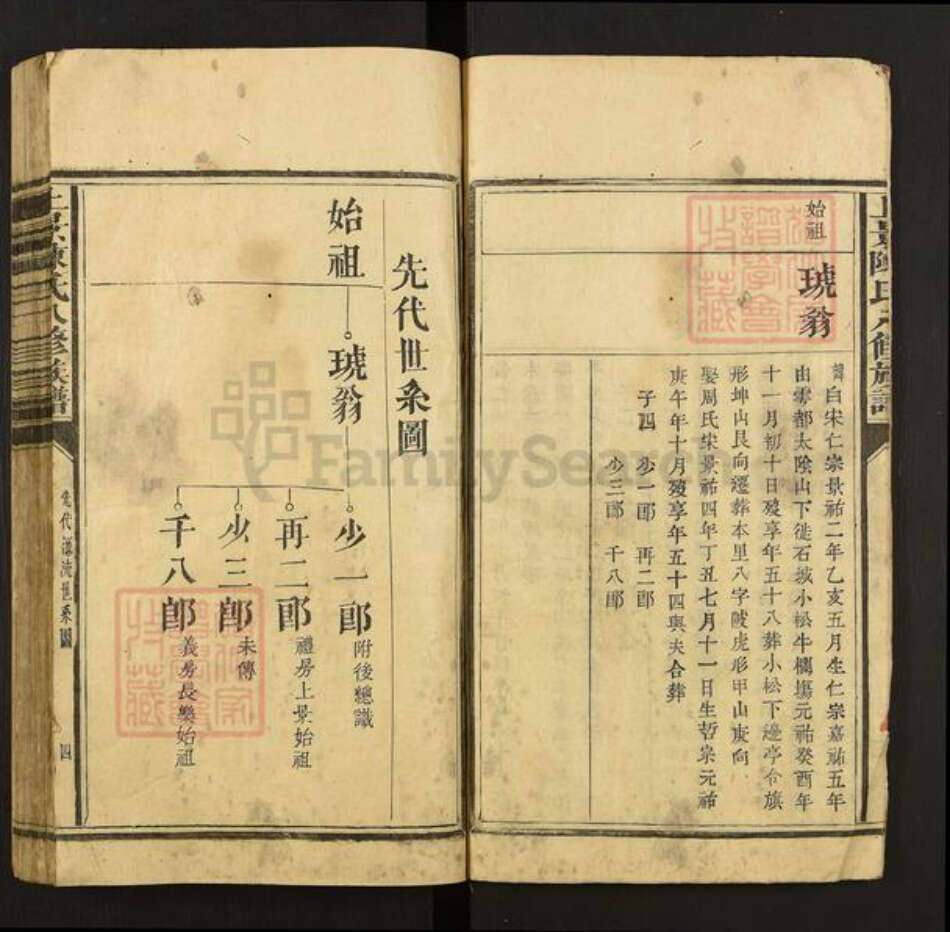 始祖
琥翁
諱白宋仁宗景祐二年乙亥五月生仁宗嘉祐五年
由雩都太陰山下徙石城小松牛欄塲元祐癸酉年
十一月初十日殁享年五十八葬小松下邊亭令旗
形坤山艮向遷葬本里八字陂虎形甲山庚向
娶周氏宋景祐四年丁丑七月十一日生哲宗元祐
庚午年十月殁享年五十四與夫合葬
子四 少一郎 再二郎
少三郎 千八郎
先代世系圖
始祖
琥翁
少一郎 附後總識
再二郎 禮房上景始祖
少三郎 未傳
千八郎 義房長樂始祖
陳氏八修族譜
四
FamilySearch